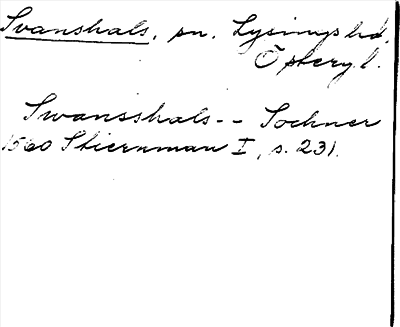 Svanshals, sn. Lysings hd.
Östergl.
Swansshals -- Sochner
1560 Stiernman I, s. 231.